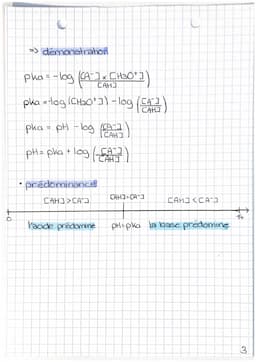 => démonstration
pka = -log ([A-] x [H3O+] / [AH])
pka = -log ([H3O+]) - log ([A-] / [AH])
pka = pH - log ([A-] / [AH])
pH = pka + log ([A-] / [AH])
• prédominance
[AH] > [A-] [AH] = [A-] [AH] < [A-]
0 14
l'acide prédomine pH = pka la base prédomine
3